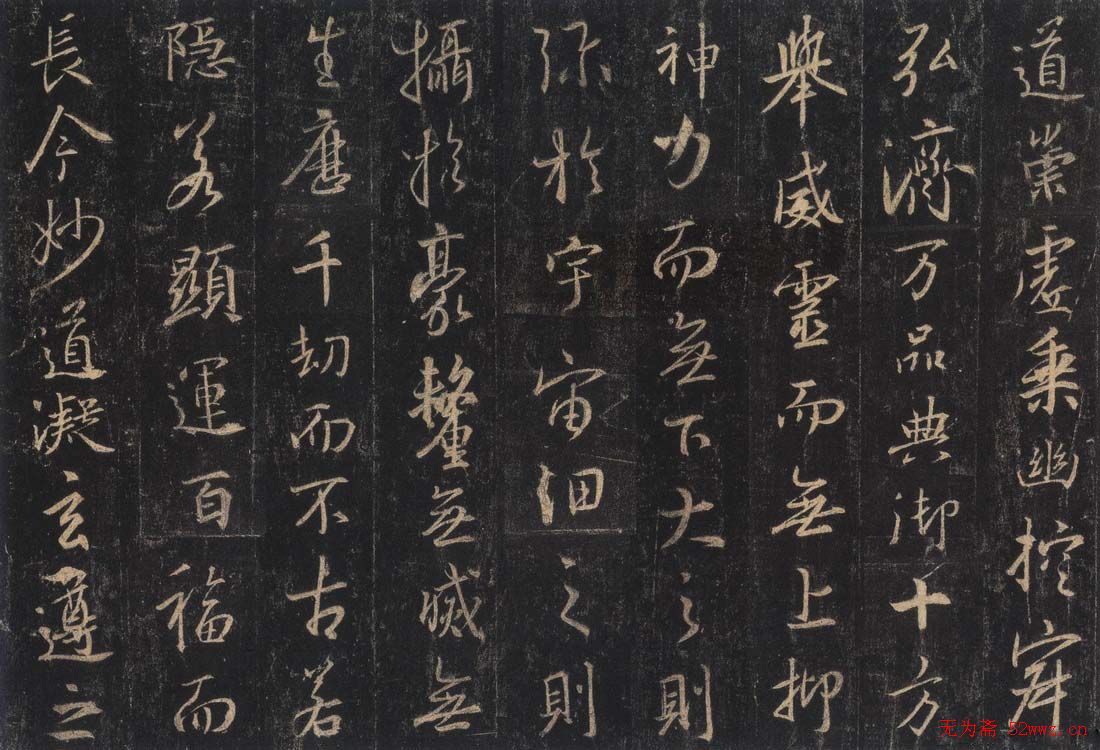 道崇虚乗幽控寂
弘濟万品典御十方
舉威靈而無上抑
神力而無下大之則
弥於宇宙細之則
攝於豪氂無滅無
生歷千劫而不古若
隱若顯運百福而
長今妙道凝玄遵之
无为斋 52wwz.cn